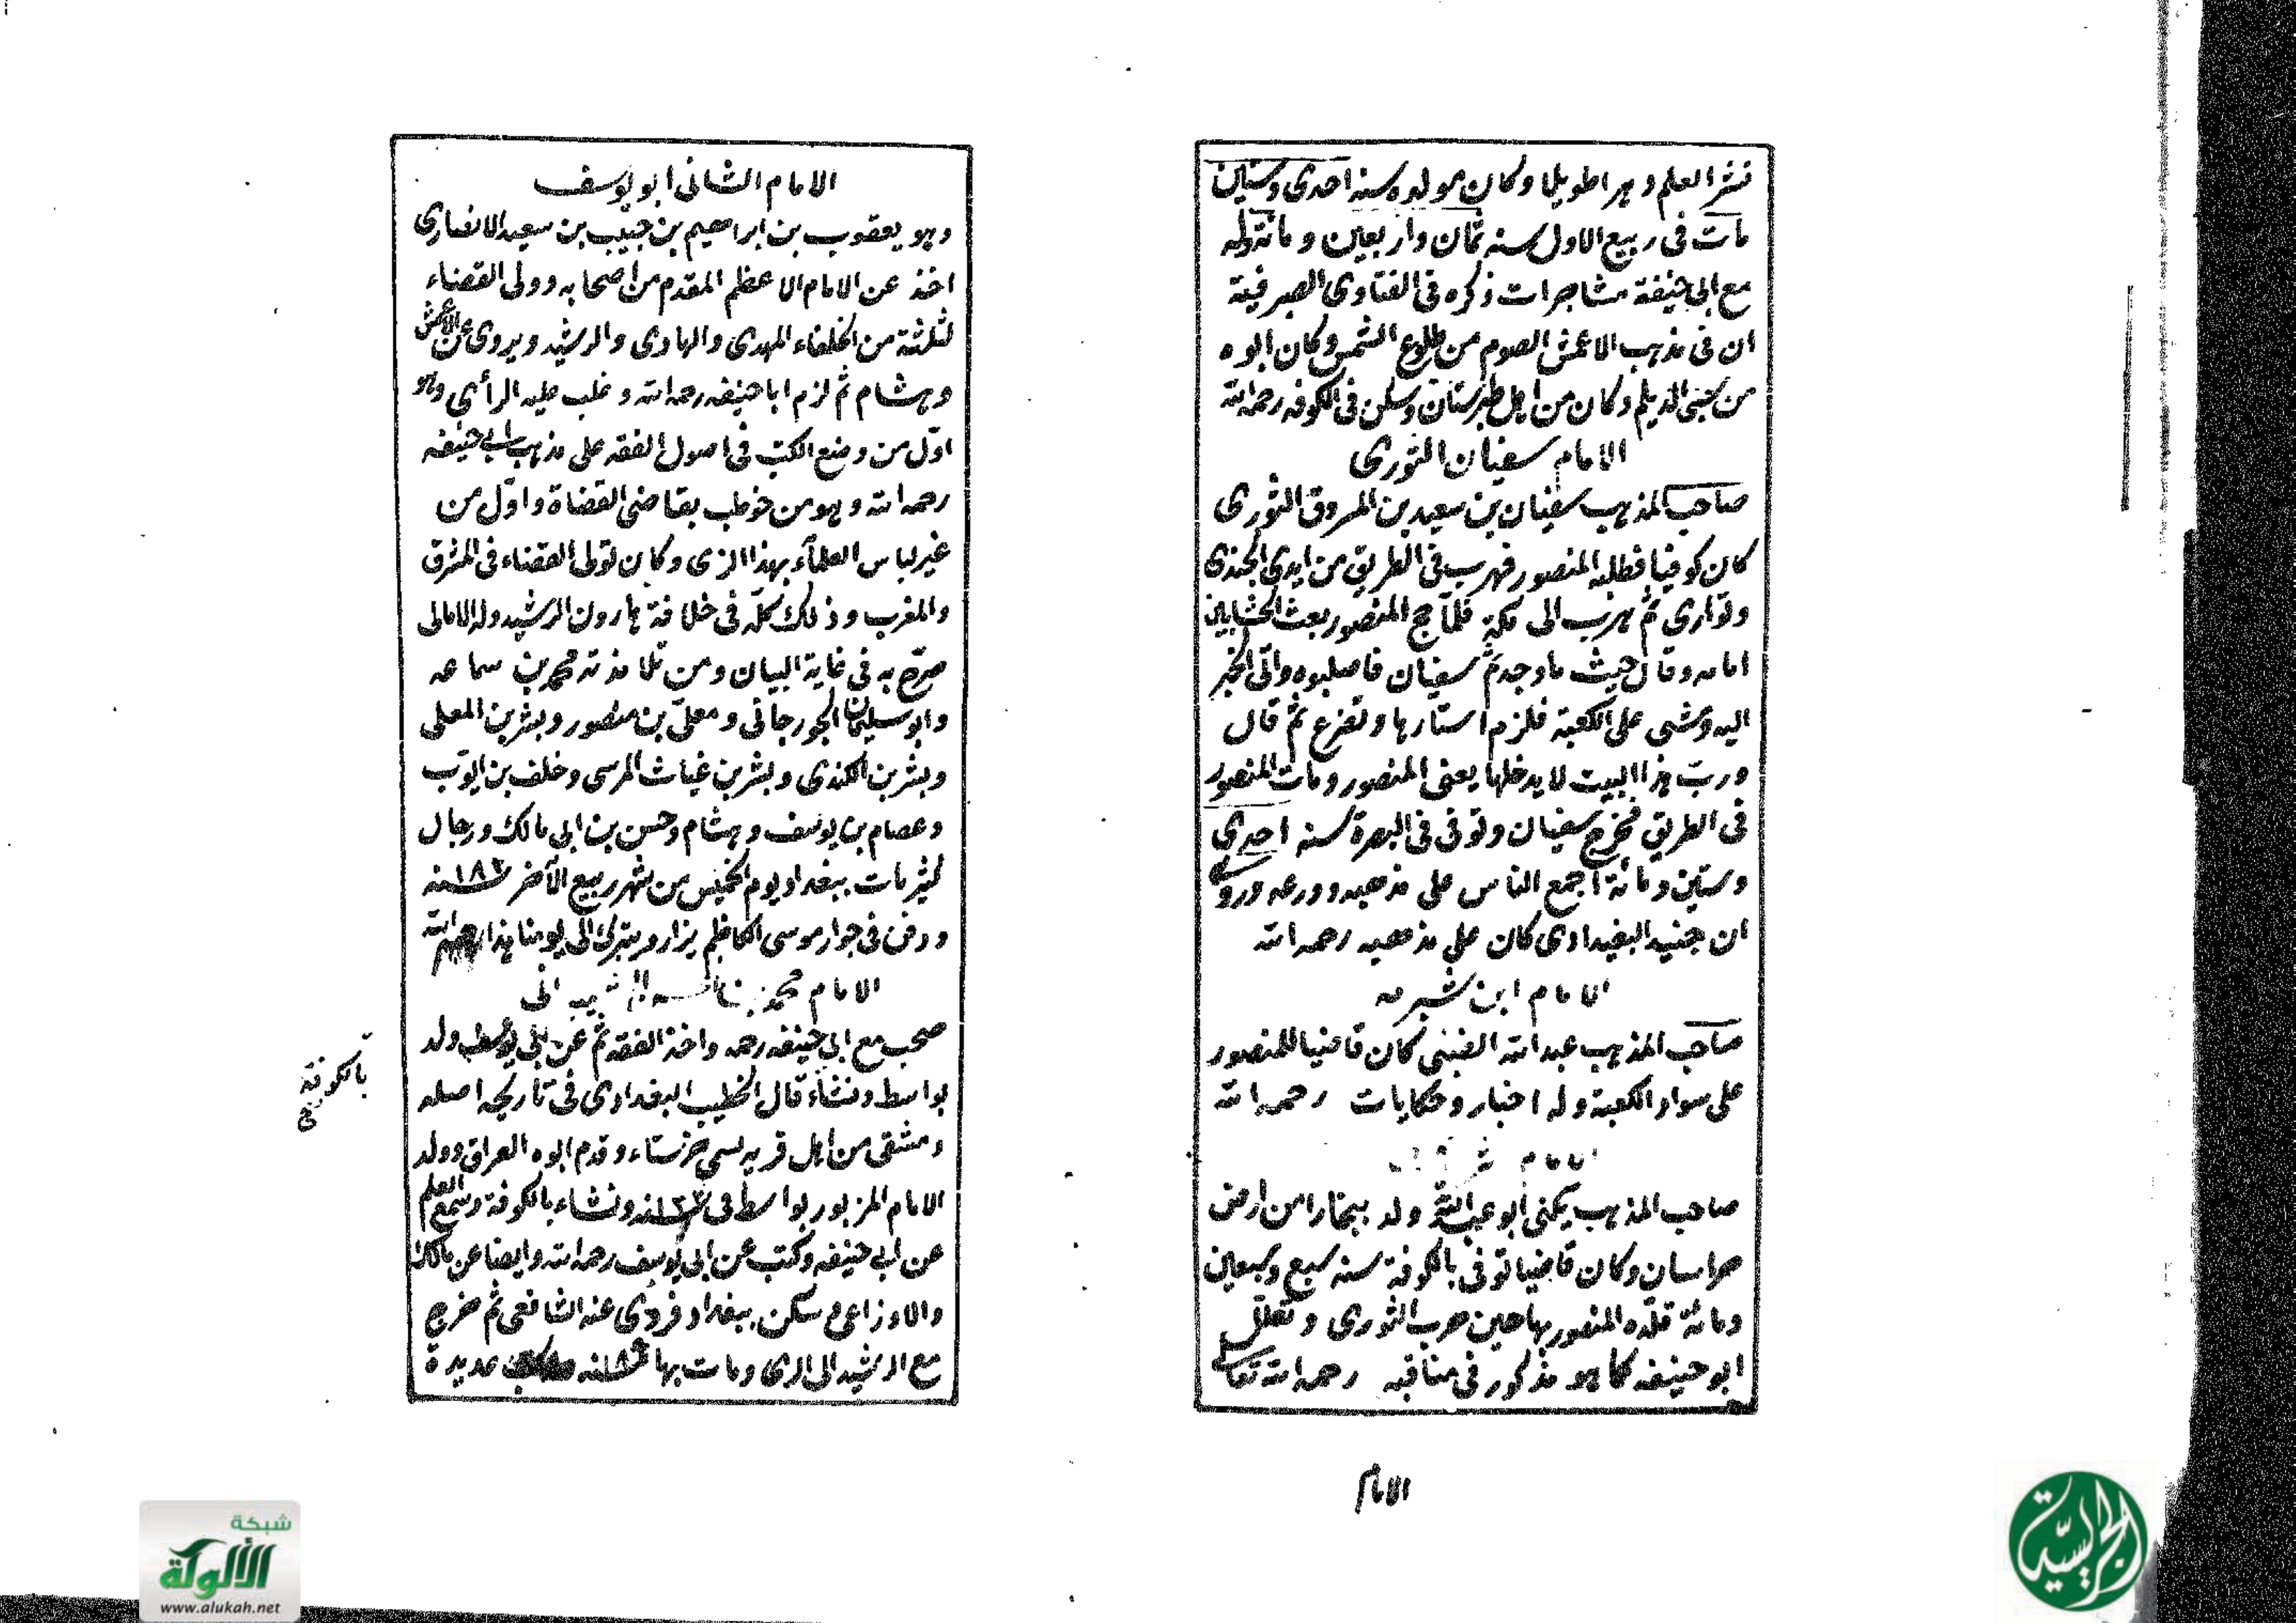 نشر العلم دهرا طويلا وكان مولده سنة احدى وستين
مات فى ربيع الاول سنة ثمان واربعين ومائة وله
مع ابى حنيفة مشاجرات ذكره فى الفتاوى الصيرفية
ان فى مذهب الاعمش الصوم من طلوع الشمس وكان ابوه
من سبى الديلم وكان من اهل طبرستان وسكن فى الكوفه رحمه الله
الامام سفيان الثورى
صاحب المذهب سفيان بن سعيد بن المروق الثورى
كان كوفيا فطلبه المنصور فهرب فى الطريق من ايدى الجندى
وتوارى ثم هرب الى مكة فلما حج المنصور بعث الخشابين
امامه وقال حيث ما وجدتم سفيان فاصلبوه واتى الخبر
اليه ومشى على الكعبة فلزم استارها وتضرع ثم قال
ورب هذا البيت لا يدخلها يعنى المنصور ومات المنصور
فى الطريق فخرج سفيان وتوفى فى البصرة سنة احدى
وستين ومائة اجمع الناس على مذهبه وورعه وروى
ان جنيد البغدادى كان على مذهبه رحمه الله
الامام ابن شبرمه
صاحب المذهب عبد الله الضبى كان قاضيا للمنصور
على سواد الكعبة وله اخبار وحكايات رحمه الله
الامام
صاحب المذهب يكنى ابو عبد الله ولد ببخارا من ارض
خراسان وكان قاضيا توفى بالكوفة سنة سبع وسبعين
ومائة قلده المنصور بها حين هرب الثورى وتعلل
ابو حنيفه كما هو مذكور فى مناقبه رحمه الله تعالى
الامام
الامام الثانى ابو يوسف
وهو يعقوب بن ابراهيم بن حبيب بن سعيد الانصارى
اخذ عن الامام الاعظم المقدم من اصحابه وولى القضاء
لثلثة من الخلفاء المهدى والهادى والرشيد ويروى عن الاعمش
وهشام ثم لزم ابا حنيفه رحمه الله وغلب عليه الرأى وهو
اول من وضع الكتب فى اصول الفقه على مذهب ابى حنيفه
رحمه الله وهو من خوطب بقاضى القضاة واول من
غير لباس العلماء بهذا الزى وكان تولى القضاء فى المشرق
والمغرب وذلك كله فى خلافة هارون الرشيد وله الامالى
صرح به فى غاية البيان ومن تلامذته محمد بن سماعه
وابو سليمان الجورجانى ومعلى بن منصور وبشر بن المعلى
وبشر بن الكندى وبشر بن غياث المرسى وخلف بن ايوب
وعصام بن يوسف وهشام وحسن بن ابى مالك ورجال
كثير مات ببغداد يوم الخميس من شهر ربيع الآخر سنة ١٨٢
ودفن فى جوار موسى الكاظم يزار ويتبرك الى يومنا هذا رحمهم الله
الامام محمد بن الشيبانى
صحب مع ابى حنيفه رحمه واخذ الفقه ثم عن ابى يوسف ولد
بواسط ونشاء قال الخطيب البغدادى فى تاريخه اصله
بالكوفة
صح
دمشقى من اهل قريه يسمى حرستاء وقدم ابوه العراق وولد
الامام المزبور بواسط فى سنة ونشاء بالكوفة وسمع العلم
عن ابى حنيفه وكتب عن ابى يوسف رحمه الله وايضا عن مالك
والاوزاعى سكن ببغداد فروى عنه الشافعى ثم خرج
مع الرشيد الى الرى ومات بها سنة عديدة
شبكة
الألوكة
www.alukah.net